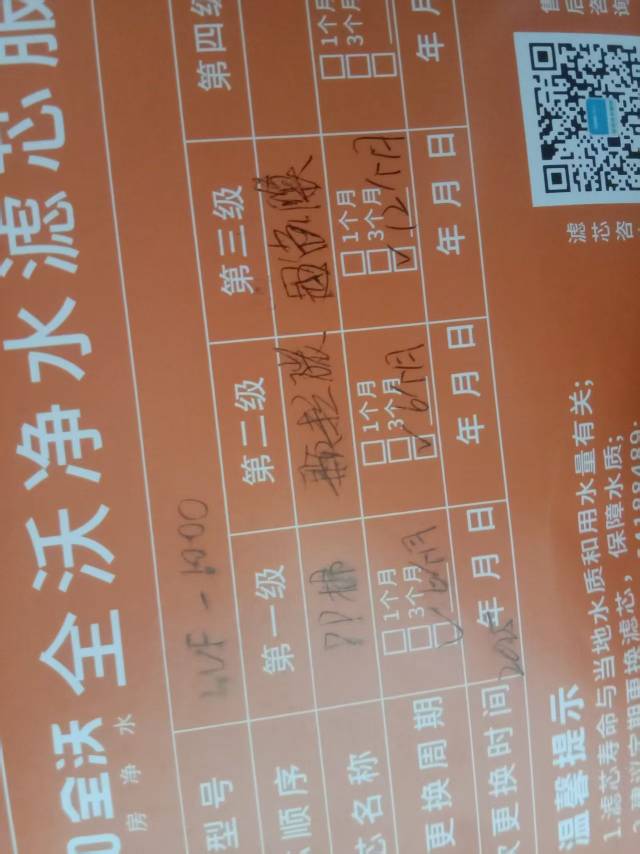 全沃净水滤芯服
全沃
房净水
型号
LUF-1000
顺序
第一级
第二级
第三级
第四级
芯名称
PP棉
超滤膜
更换周期
1个月
3个月
6个月
1个月
3个月
6个月
1个月
3个月
12个月
1个月
3个月
更换时间
年月日
年月日
年月日
年月
温馨提示
1.滤芯寿命与当地水质和用水量有关;
期更换滤芯，保障水质;
售后咨询
滤芯咨